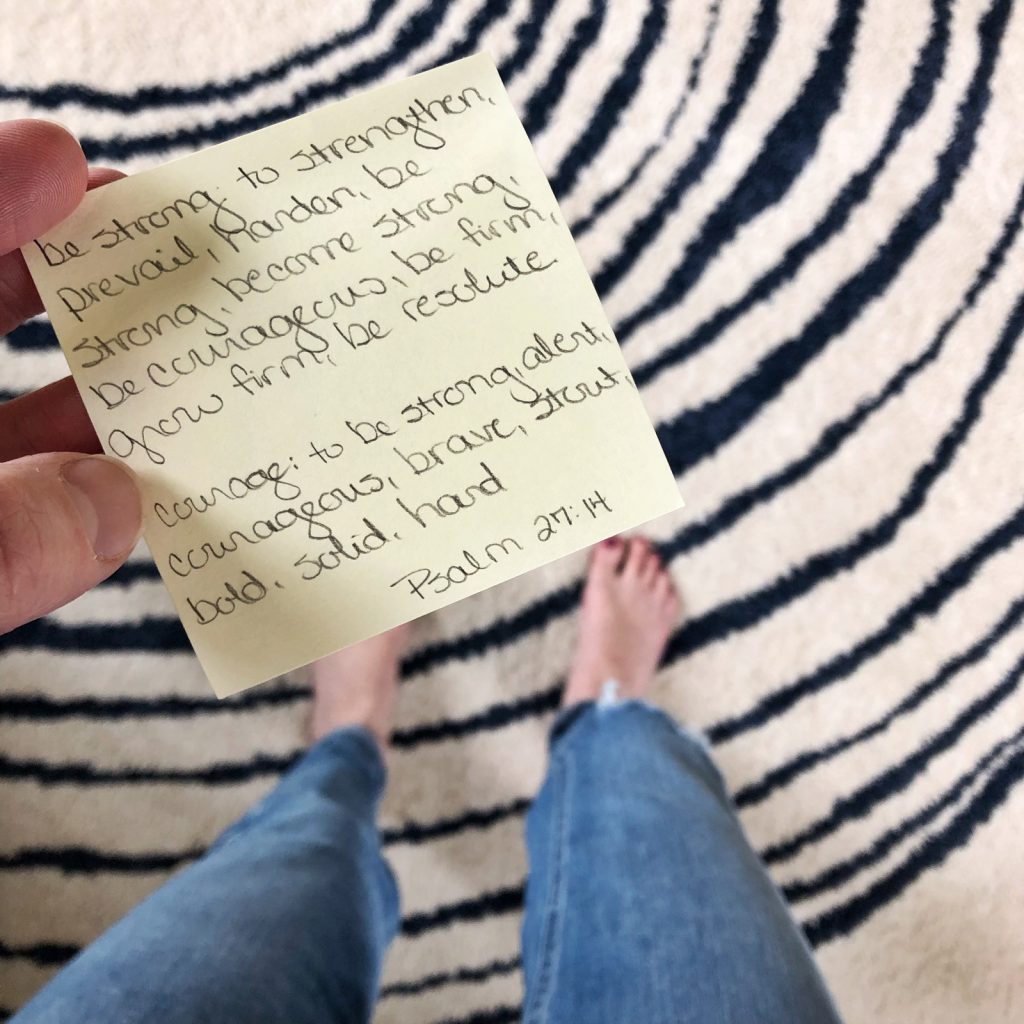 be strong: to strengthen,
prevail, harden, be
strong, become strong,
be courageous, be firm,
grow firm, be resolute.
courage: to be strong, alert,
courageous, brave, stout,
bold, solid, hard
Psalm 27:14